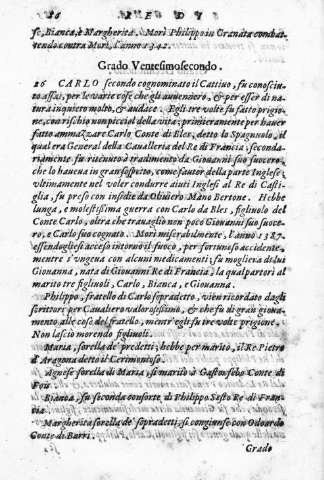 16 PIE DVE
se, Bianca, è Margherita. Morì Philippo in Granata combat-
tendo contra Mori, l'anno 1342.
Grado Ventesimosecondo.
26 CARLO secondo cognominato il Cattiuo, fu conosciu-
to assai, per le varie cose che gli auuennero, & per esser di na-
tura inquieto molto, & audace. Egli tre volte fu fatto prigio-
ne, con rischio non picciol della vita: primieramente per hauer
fatto ammazzare Carlo Conte di Eles, detto lo Spagnuolo, il
qual era General della Caualleria del Re di Francia, secondа-
riamente fu ritenuto à tradimento da Giouanni suo suocero,
che lo haueua in gran sospetto, come fautor della parte Inglese:
vltimamente nel voler condurre aiuti Inglesi al Re di Casti-
glia, fu preso con insidie da Oliuiero Mano Bertone. Hebbe
lunga, e molestissima guerra con Carlo da Bles, figliuolo del
Conte Carlo, oltra che trauagliò non poco Giouanni suo suoce-
ro, e Carlo suo cognato. Morì miserabilmente, l'anno 1387.
essendoglisi acceso intorno il fuoco, per fortunoso accidente,
mentre s'vngeua con alcuni medicamenti: fu mogliera de lui
Giouanna, nata di Giouanni Re di Francia: la qual partorì al
marito tre figliuoli, Carlo, Bianca, e Giouanna.
Philippo, fratello di Carlo sopradetto, vien ricordato dagli
scrittori per Caualiero valorosissimo, & che fu di gran gioua-
mento alle cose del fratello, mentr'egli fu tre volte prigione.
Non lasciò morendo figliuoli.
Maria, sorella de' predetti, hebbe per marito, il Re Pietro
d'Aragona detto il Cerimonioso.
Agnese sorella di Maria, si maritò à Gastonfebo Conte di
Fois.
Bianca, fu seconda consorte, di Philippo Sesto Re di Fran-
cia.
Margherita sorella de' sopradetti, si congiunse con Odoardo
Conte di Barri.
Grado